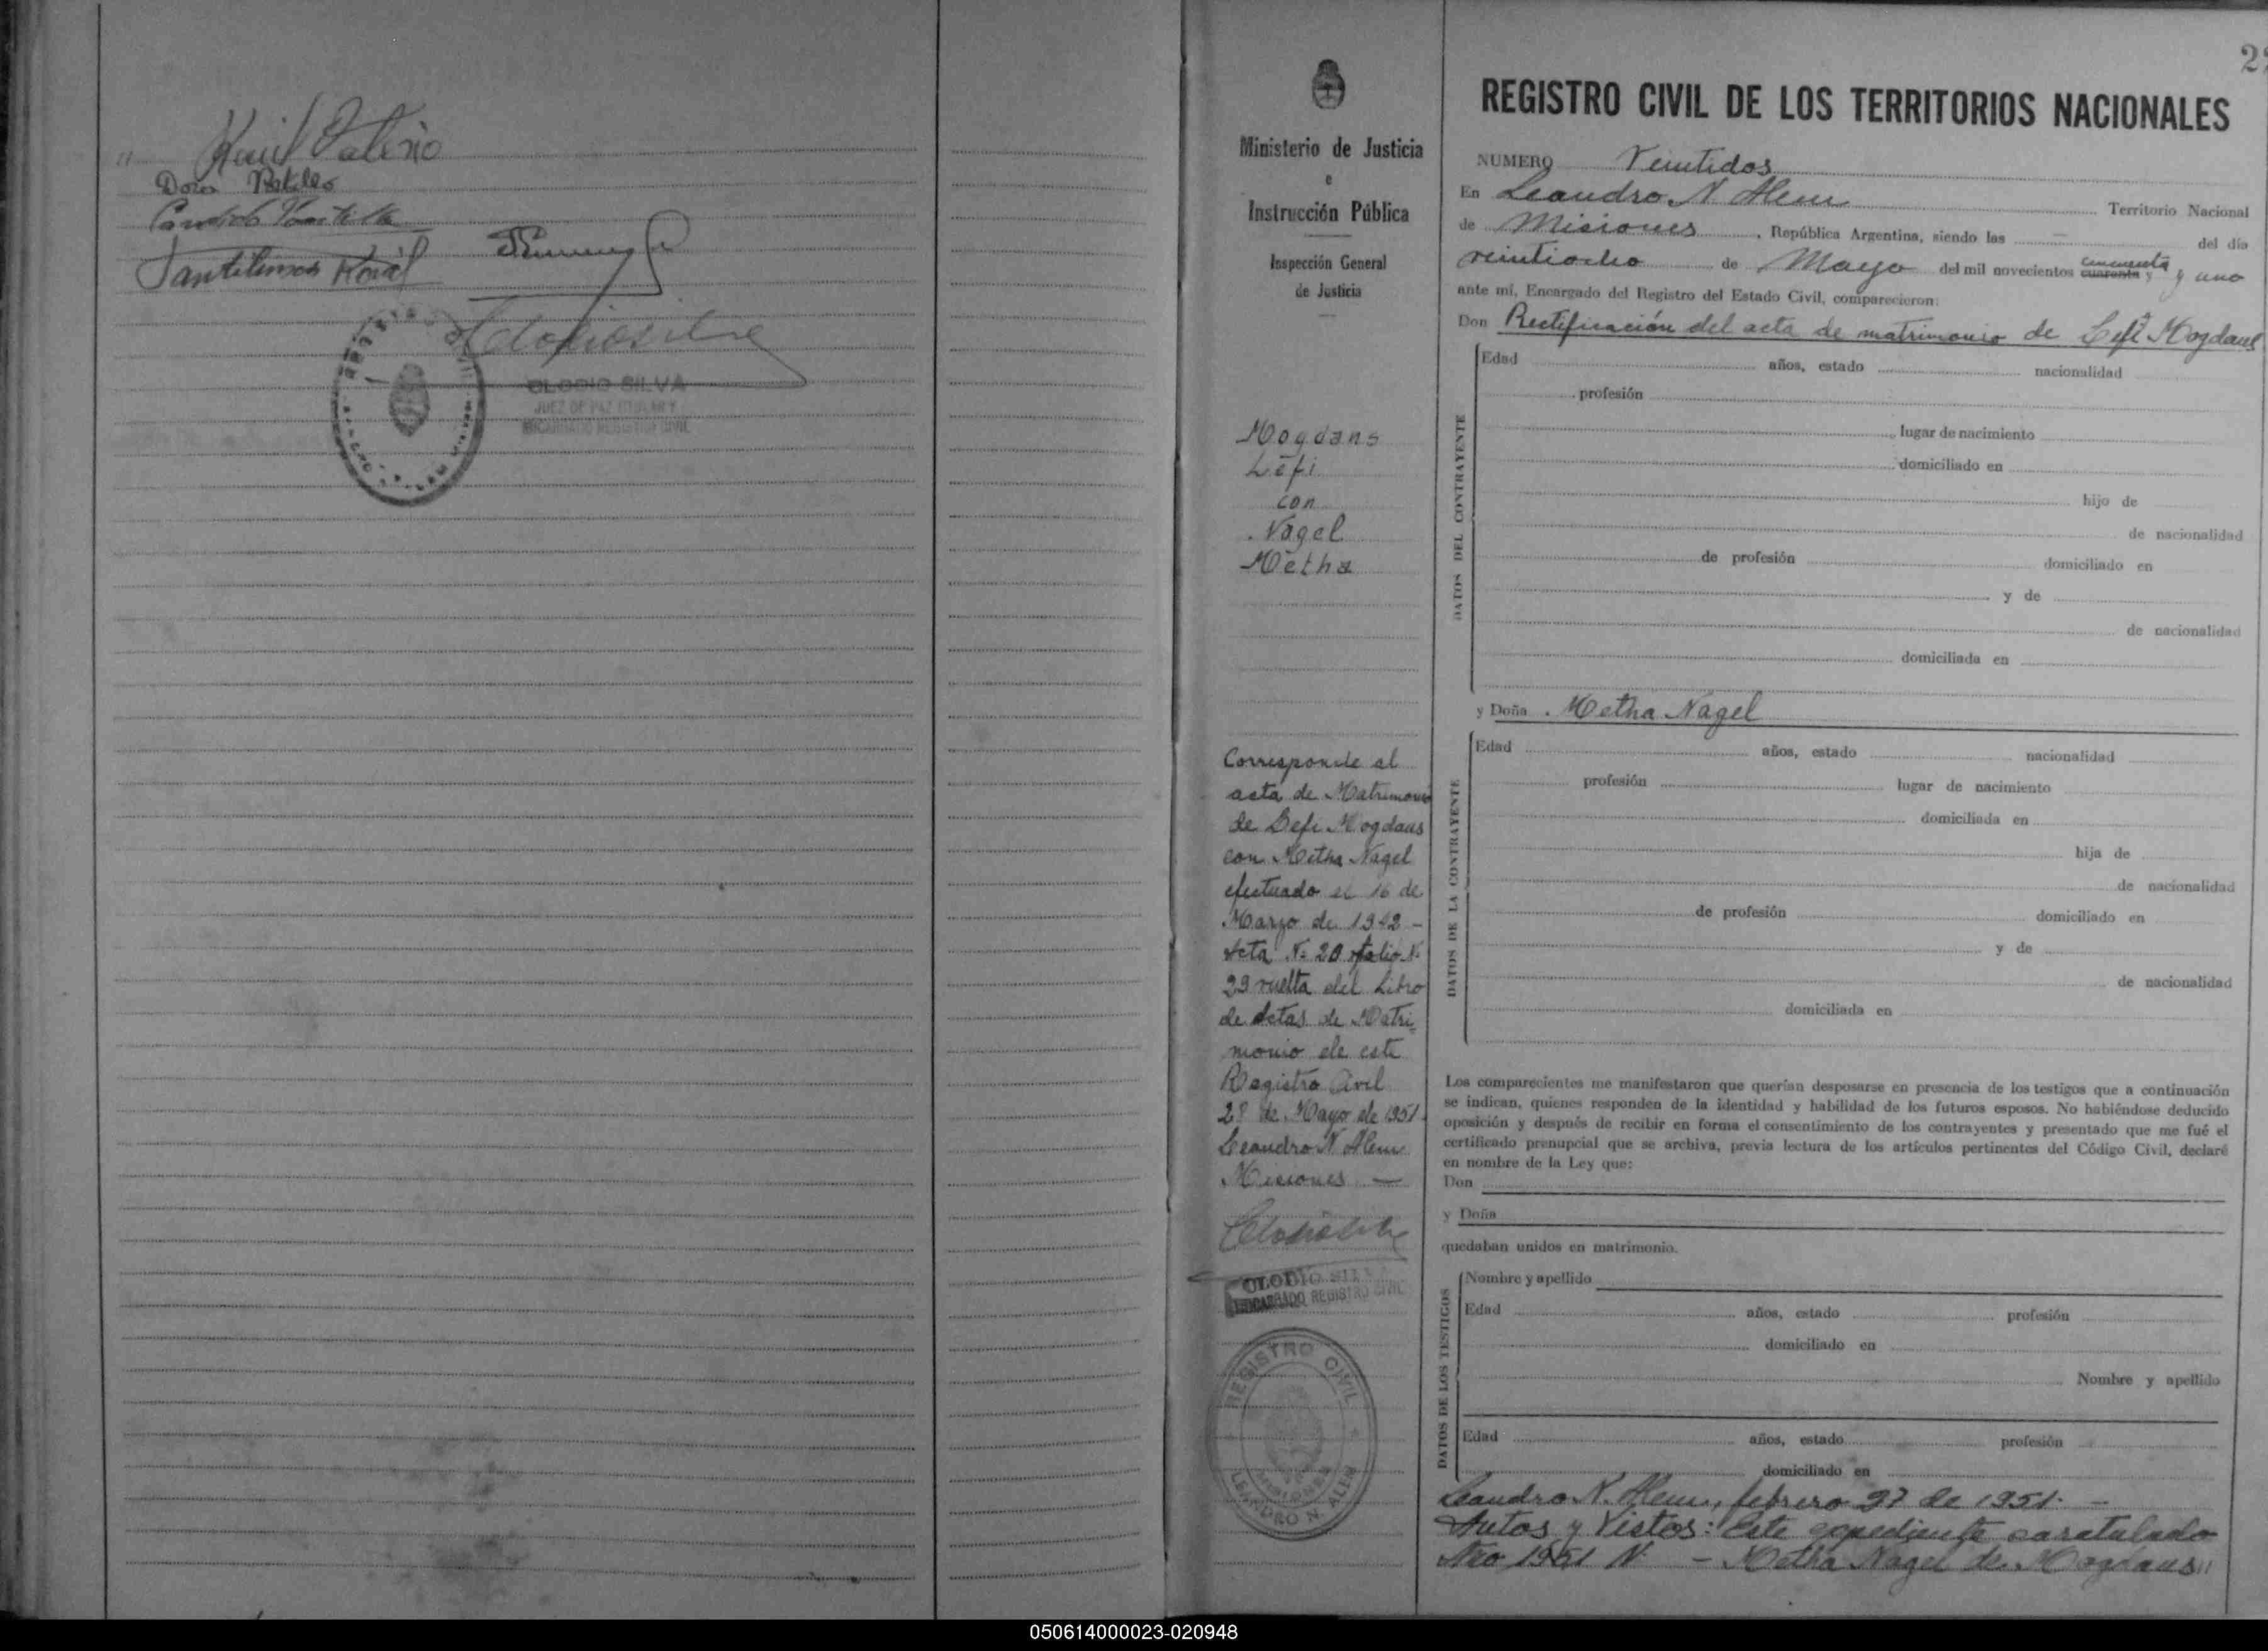 Raúl
Doris
Pantilimon Koval
OLODIO SILVA
JUEZ DE PAZ TITULAR Y
ENCARGADO REGISTRO CIVIL
Ministerio de Justicia
e
Instrucción Pública
Inspección General
de Justicia
Mogdans
Lefi
con
Nagel
Metha
Corresponde al
acta de Matrimonio
de Lefi Mogdans
con Metha Nagel
efectuado el 16 de
Marzo de 1942 -
Acta Nº 20 folio Nº
29 vuelta del Libro
de Actas de Matri-
monio de este
Registro Civil
28 de Mayo de 1951
Leandro N. Alem
Misiones —
OLODIO SILVA
ENCARGADO REGISTRO CIVIL
REGISTRO CIVIL
MISIONES
LEANDRO N. ALEM
22
REGISTRO CIVIL DE LOS TERRITORIOS NACIONALES
NUMERO Veintidos
En Leandro N. Alem Territorio Nacional
de Misiones, República Argentina, siendo las — del día
veintiocho de Mayo del mil novecientos cuarenta y cincuenta y uno
ante mí, Encargado del Registro del Estado Civil, comparecieron:
Don Rectificación del acta de matrimonio de Lefi Mogdans
DATOS DEL CONTRAYENTE
Edad años, estado nacionalidad
profesión
lugar de nacimiento
domiciliado en
hijo de
de nacionalidad
de profesión domiciliado en
y de
de nacionalidad
domiciliada en
y Doña Metha Nagel
DATOS DE LA CONTRAYENTE
Edad años, estado nacionalidad
profesión lugar de nacimiento
domiciliada en
hija de
de nacionalidad
de profesión domiciliado en
y de
de nacionalidad
domiciliada en
Los comparecientes me manifestaron que querían desposarse en presencia de los testigos que a continuación
se indican, quienes responden de la identidad y habilidad de los futuros esposos. No habiéndose deducido
oposición y después de recibir en forma el consentimiento de los contrayentes y presentado que me fué el
certificado prenupcial que se archiva, previa lectura de los artículos pertinentes del Código Civil, declaré
en nombre de la Ley que:
Don
y Doña
quedaban unidos en matrimonio.
DATOS DE LOS TESTIGOS
Nombre y apellido
Edad años, estado profesión
domiciliado en
Nombre y apellido
Edad años, estado profesión
domiciliado en
Leandro N. Alem, febrero 27 de 1951. —
Autos y Vistos: Este expediente caratulado
Año 1951 N. — Metha Nagel de Mogdans //
050614000023-020948